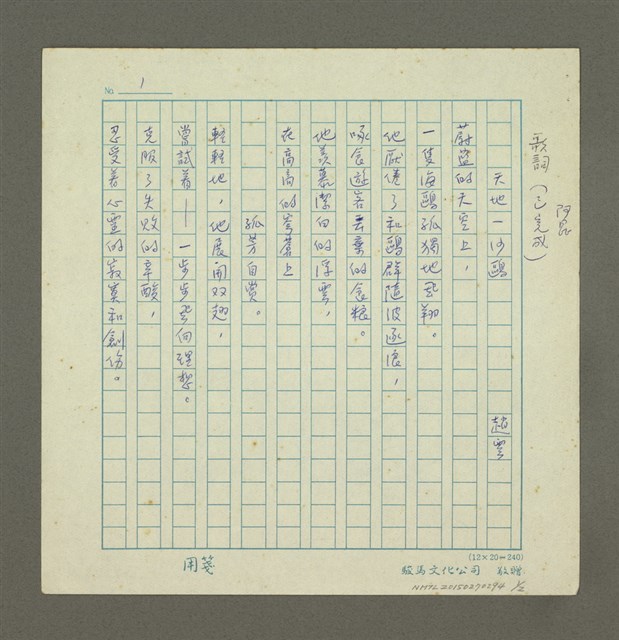 No. 1
歌詞(已完成)
阿昆
天地一沙鷗
趙雲
蔚藍的天空上，
一隻海鷗孤獨地飛翔。
他厭倦了和鷗群隨波逐浪，
啄食遊客丟棄的食糧。
他羨慕潔白的浮雲，
在高高的穹蒼上
孤芳自賞。
輕輕地，他展開双翅，
嘗試着——一步步飛向理想。
克服了失敗的辛酸，
忍受着心靈的寂寞和創傷。
(12×20=240)
駿馬文化公司 敬贈
用箋
NMTL20150270294 1/2